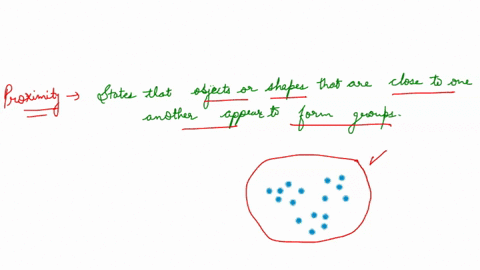 Proximity → States that objects or shapes that are close to one
another appear to form groups.